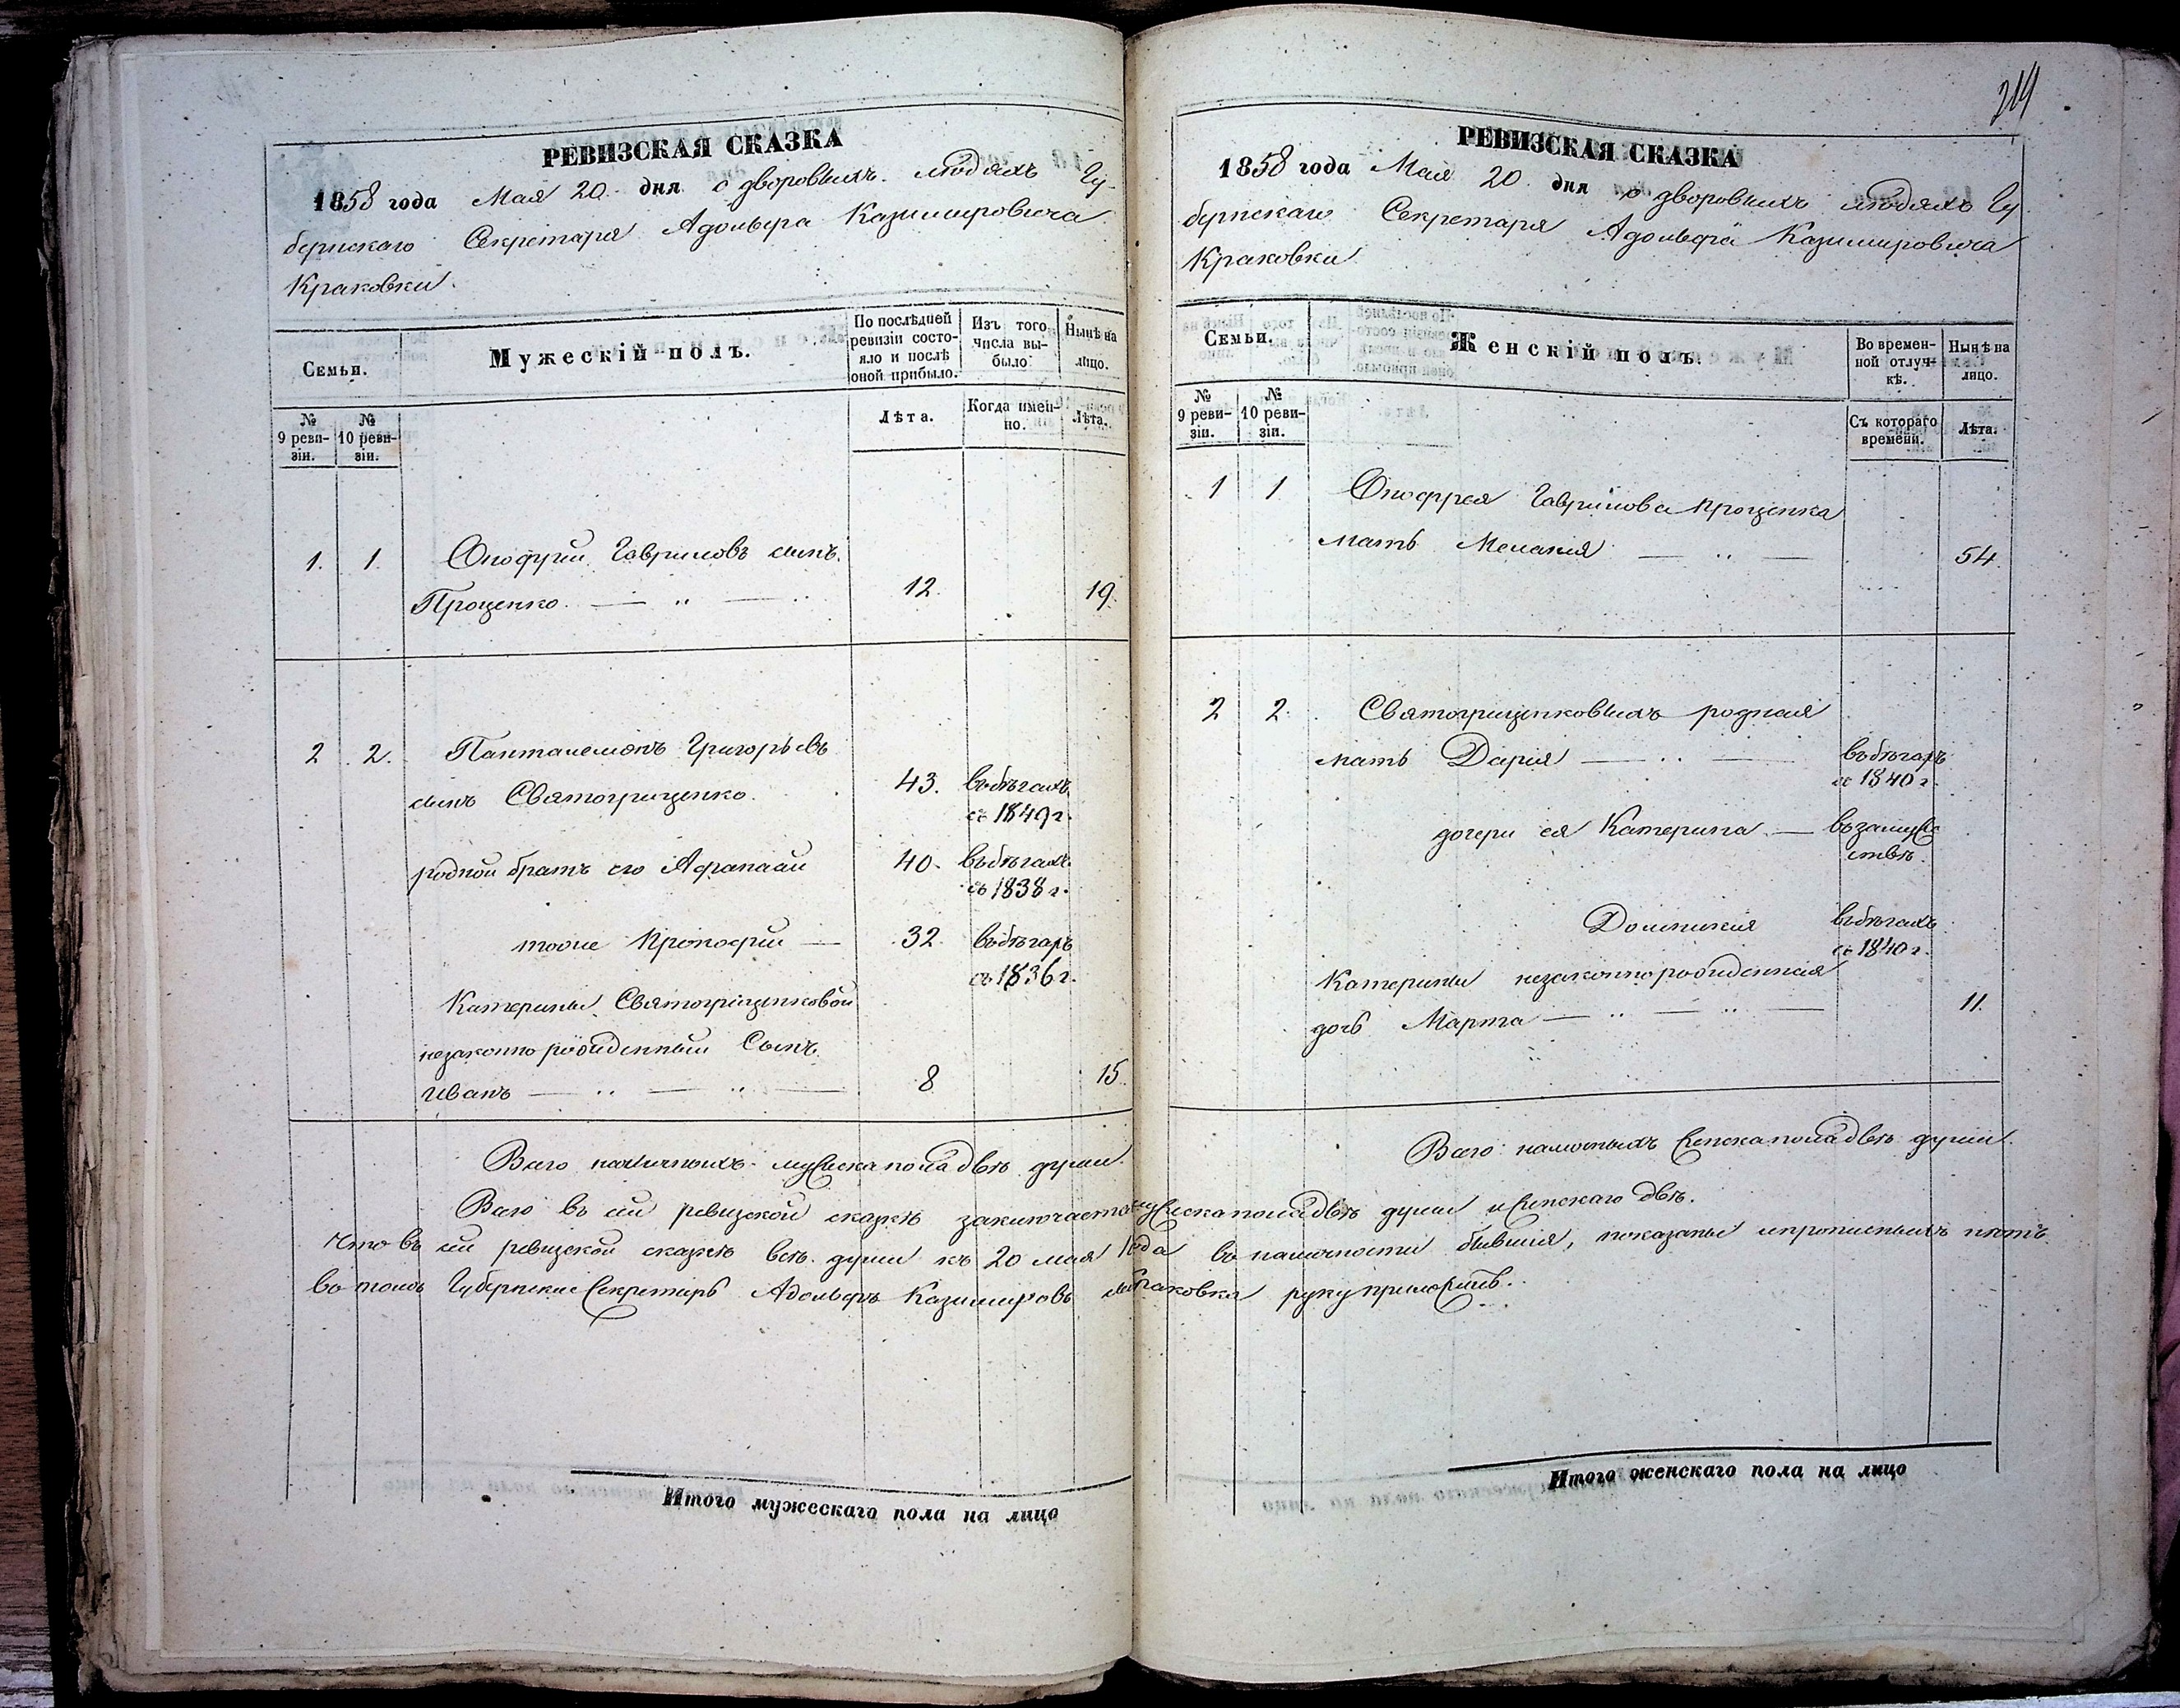 РЕВИЗСКАЯ СКАЗКА
1858 года Мая 20. дня о дворовыхъ людяхъ Гу-
бернскаго Секретаря Адольфа Казимировича
Краковки.
Семьи.
Мужескій полъ.
По послѣдней
ревизіи состо-
яло и послѣ
оной прибыло.
Изъ того
числа вы-
было
Нынѣ на
лицо.
№
9 реви-
зіи.
№
10 реви-
зіи.
Лѣта.
Когда имен-
но.
Лѣта.
1. 1. Онофрій Гавриловъ сынъ
Проценко. 12. 19.
2 2. Пантелемонъ Григорьевъ
сынъ Святогрищенко. 43. въ бѣгахъ
съ 1849 г.
родной братъ его Афанасій 40. въ бѣгахъ
съ 1838 г.
тоже Прокофій 32. въ бѣгахъ
съ 1836 г.
Катерины Святогрищенковой
незаконнорожденный Сынъ
Иванъ 8 15.
Всего наличныхъ мужеска пола двѣ души.
Итого мужескаго пола на лицо
214
РЕВИЗСКАЯ СКАЗКА
1858 года Мая 20 дня о дворовыхъ людяхъ Гу
бернскаго Секретаря Адольфа Казимировича
Краковки
Семьи.
Женскій полъ.
Во времен-
ной отлуч-
кѣ.
Нынѣ на
лицо.
№
9 реви-
зіи.
№
10 реви-
зіи.
Съ котораго
времени.
Лѣта.
1 1 Онофрея Гаврилова Проценка
мать Меланія 54.
2 2. Святогрищенковыхъ родная
мать Дарія въ бѣгахъ
съ 1840 г.
дочери ея Катерина въ замуже
ствѣ.
Домникия въ бѣгахъ
съ 1840 г.
Катерины незаконнорожденная
дочь Марта 11.
Всего наличныхъ женска пола двѣ души.
Всего въ сей ревизской сказкѣ заключается мужеска пола двѣ души и женскаго двѣ.
Что въ сей ревизской сказкѣ всѣ души къ 20 мая года въ наличности бывшія, показаны и прописныхъ нѣтъ
въ томъ Губернский Секретарь Адольфъ Казимировъ сынъ Краковка руку приложилъ.
Итого женскаго пола на лицо